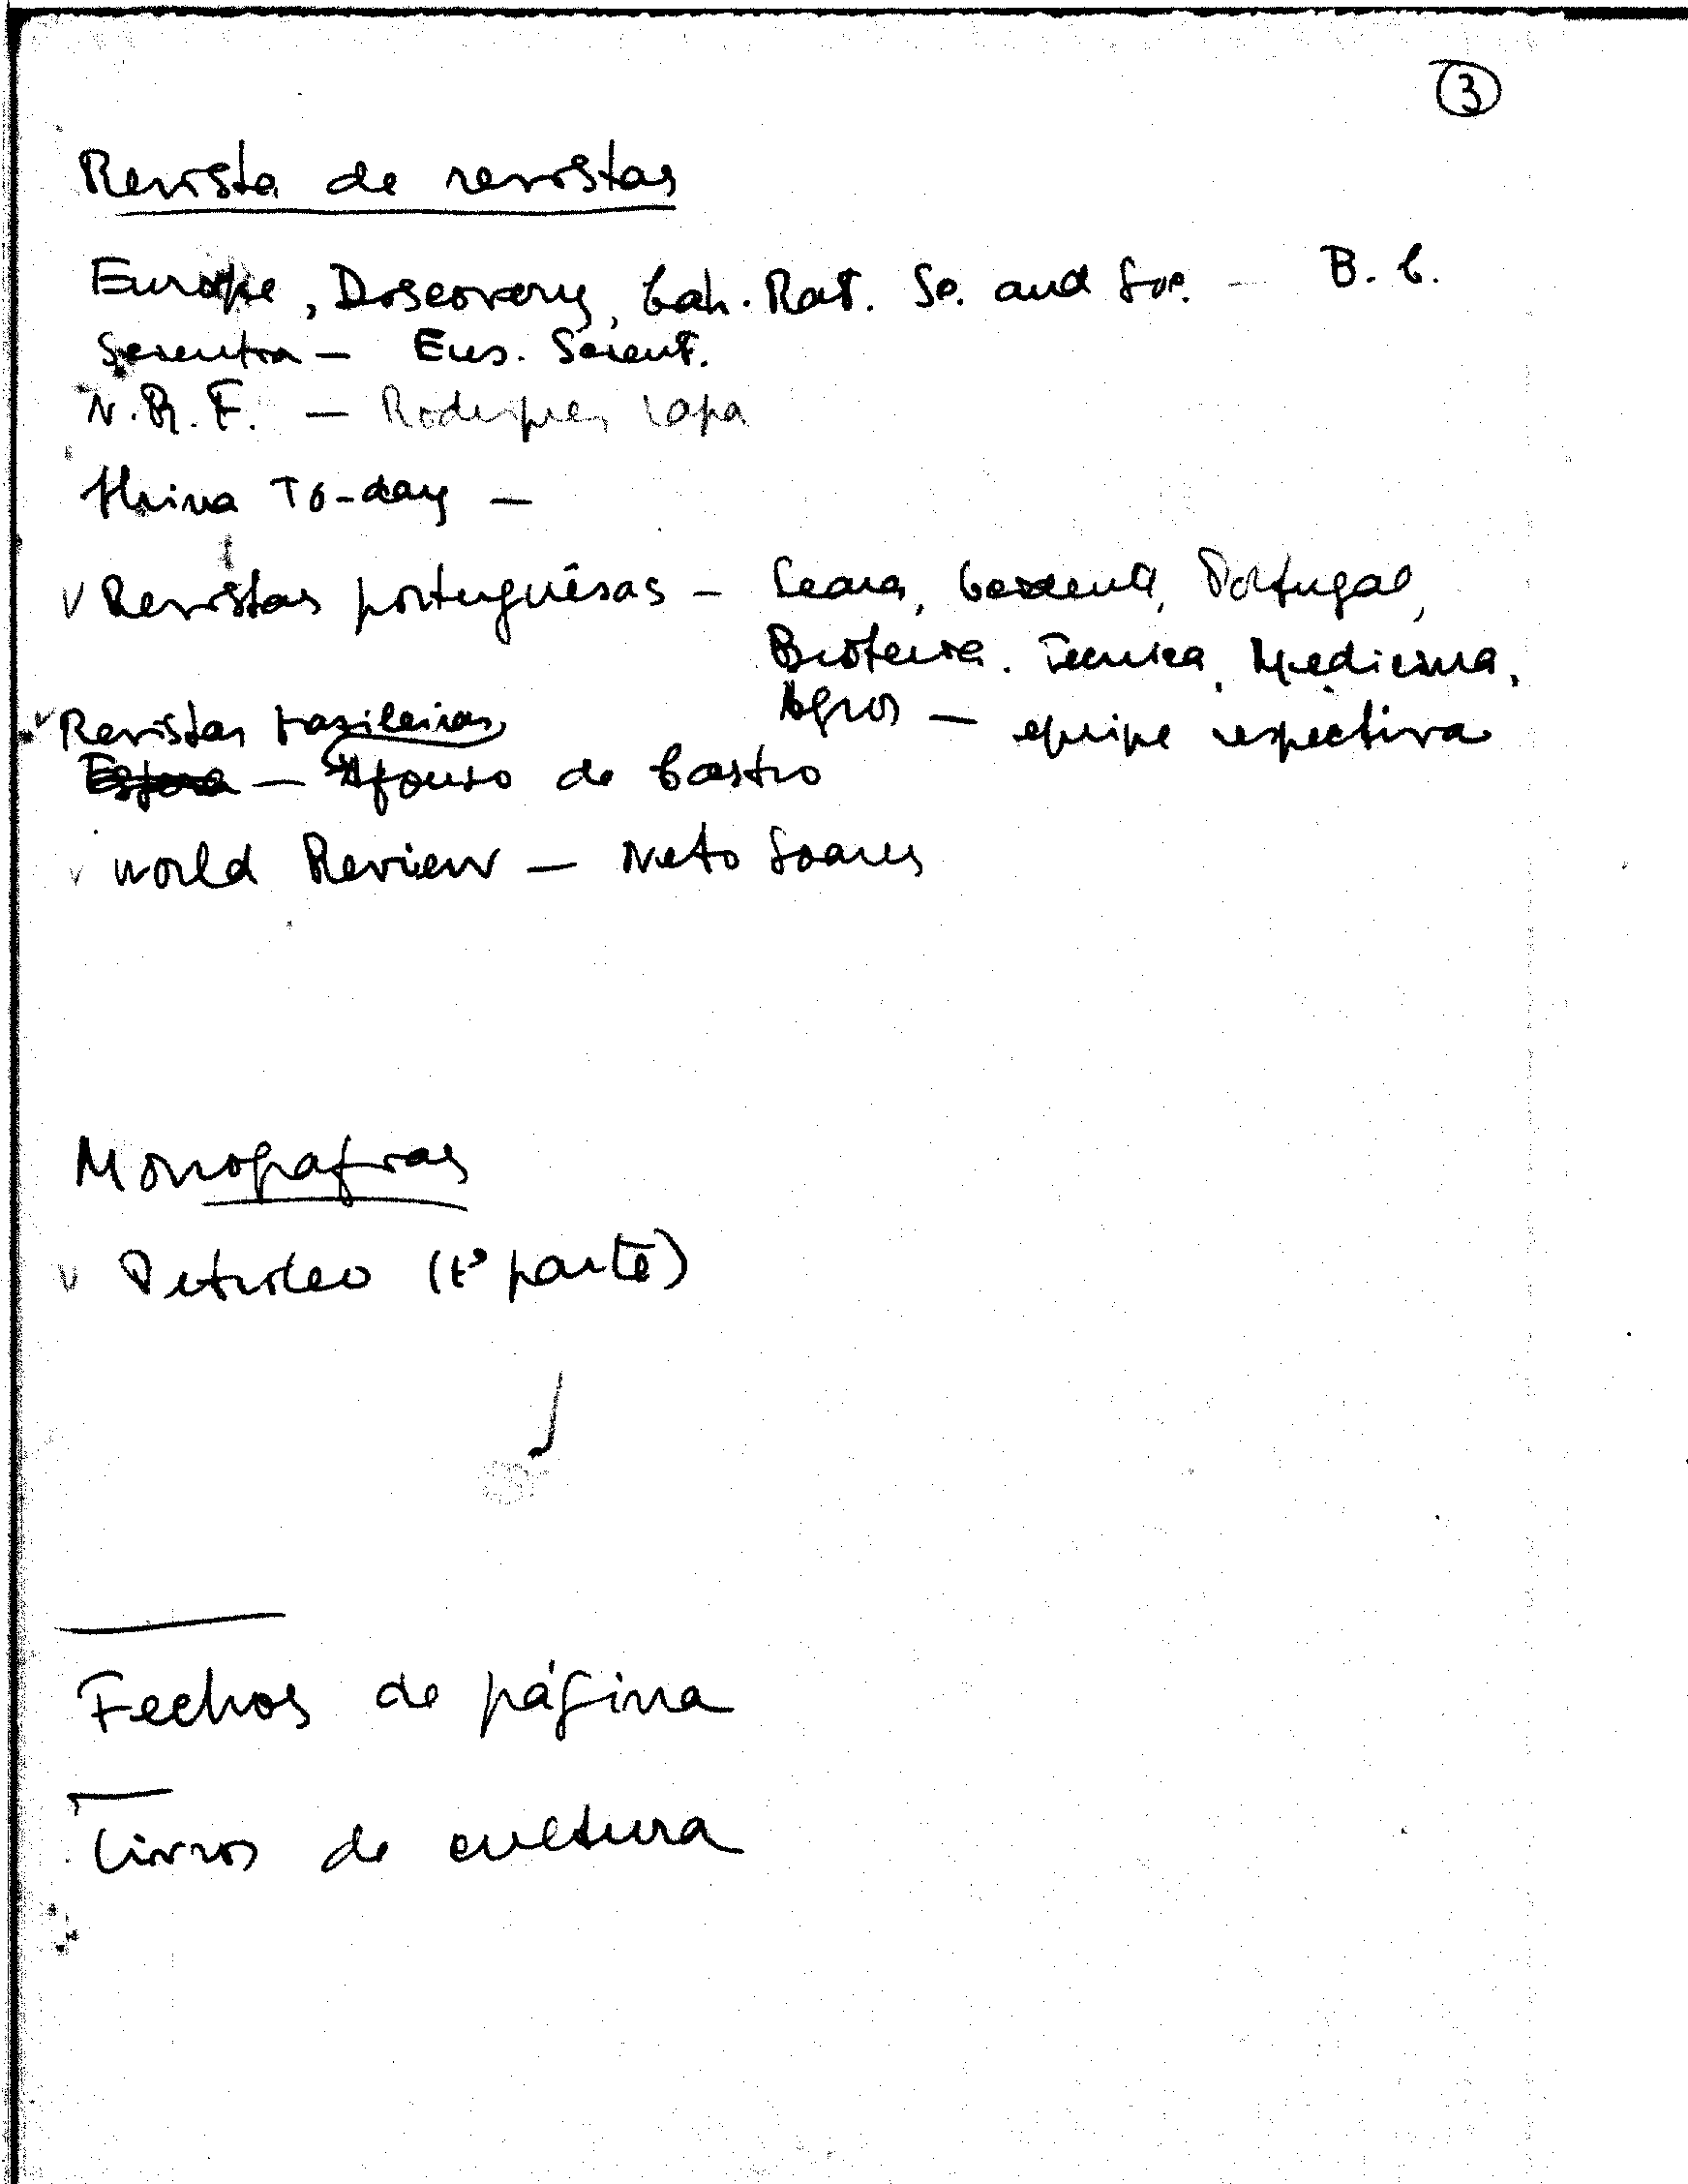 3
Revista de revistas
Europe, Discovery, Cah. Rat. Sc. and Soc. — B. C.
Scientia — Ens. Scient.
N.R.F. — Rodrigues Lapa
China To-day —
v Revistas portuguêsas — Seara, Portugal,
Broteria. Técnica, Medicina,
Agros — equipe respectiva
v Revistas brasileiras
Esfera — Afonso de Castro
v World Review — Neto Soares
Monografias
v Petroleo (1ª parte)
Fechos de página
Livros de cultura